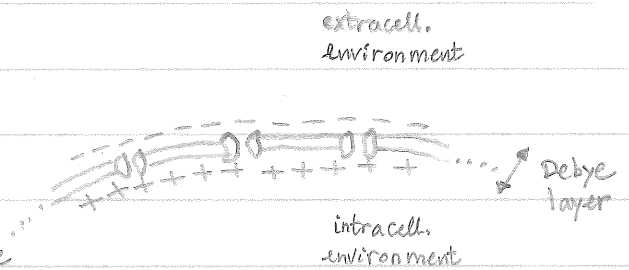 extracell.
environment
Debye
layer
intracell.
environment